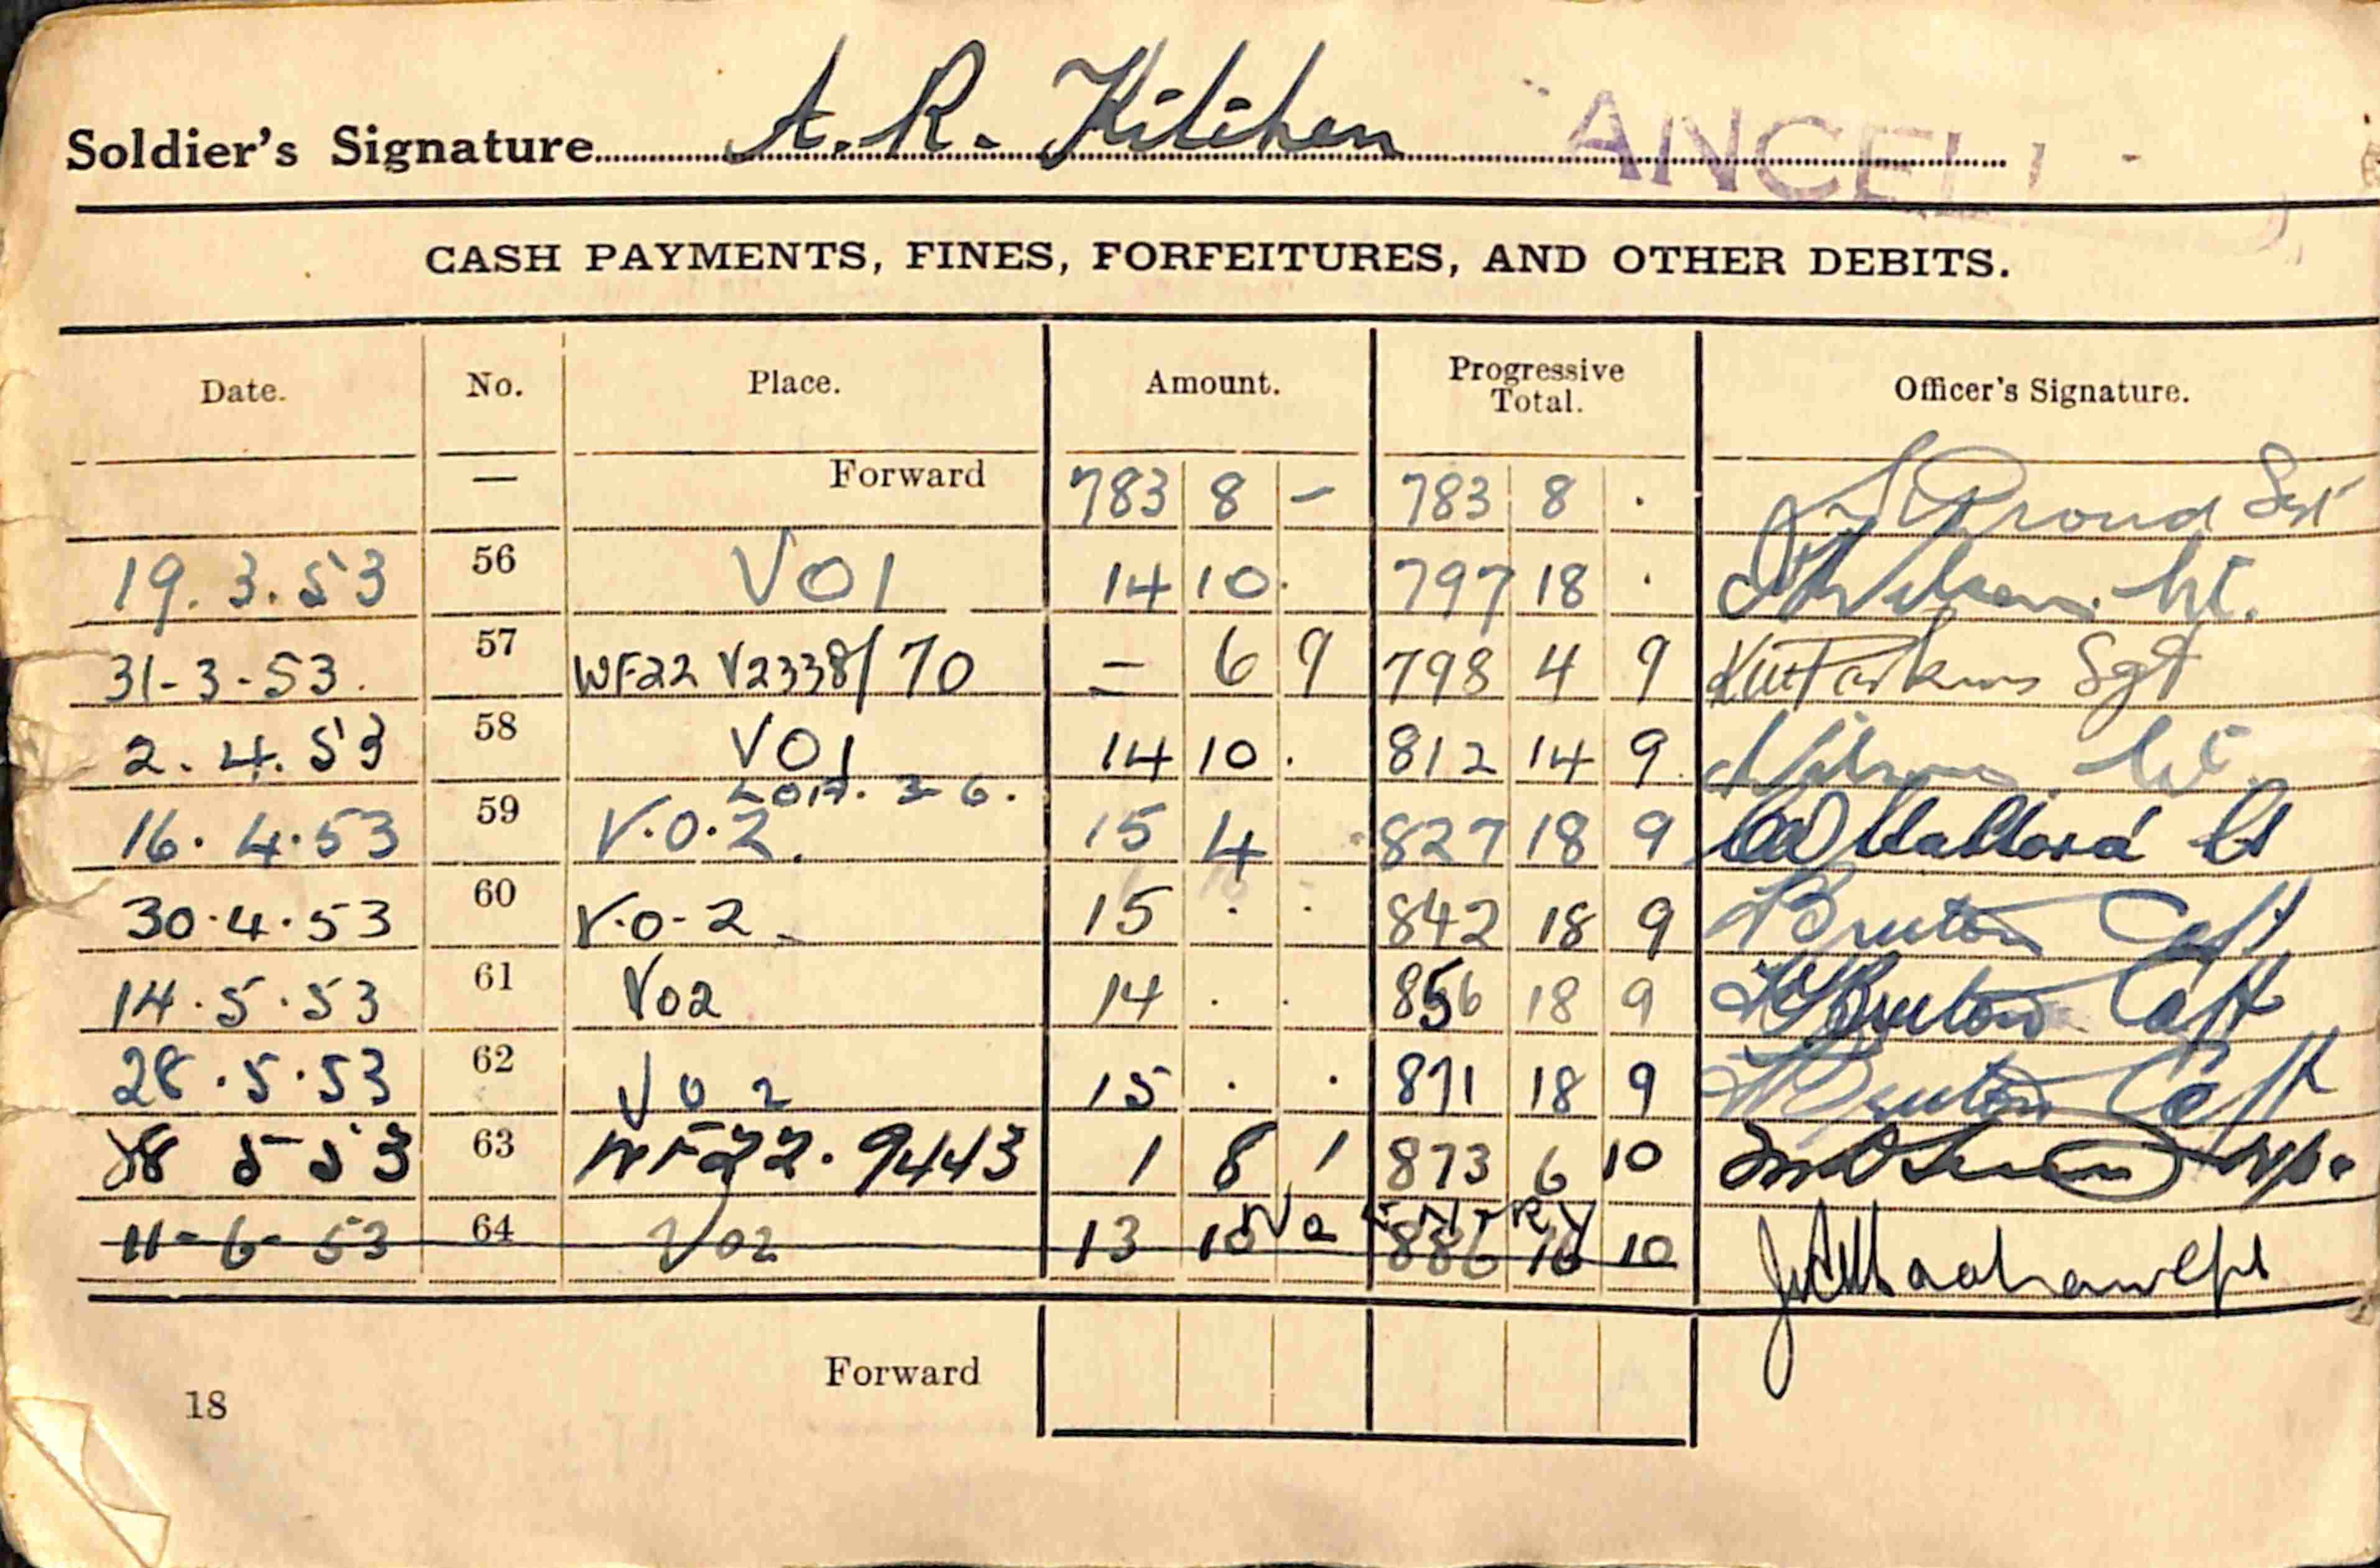 Soldier's Signature A. R. Kitchen
ANCEL
CASH PAYMENTS, FINES, FORFEITURES, AND OTHER DEBITS.
Date. No. Place. Amount. Progressive Total. Officer's Signature.
— Forward 783 8 – 783 8 . Proud Sgt
19.3.53 56 VO1 14 10 . 797 18 . Wilson Lt.
31-3-53. 57 WF22 V2338/70 – 6 9 798 4 9 Sgt
2.4.53 58 VO1 14 10 . 812 14 9 Wilson Lt.
16.4.53 59 V.O.2. 15 4 827 18 9 Lt
30.4.53 60 V.O-2 15 . . 842 18 9 Bruton Capt
14.5.53 61 V02 14 . . 856 18 9 Bruton Capt
28.5.53 62 V02 15 . . 871 18 9 Bruton Capt
28 5 53 63 WF22.9443 1 8 1 873 6 10
No ENTRY
11-6-53 64 V02 13 10 886 16 10
Forward
18